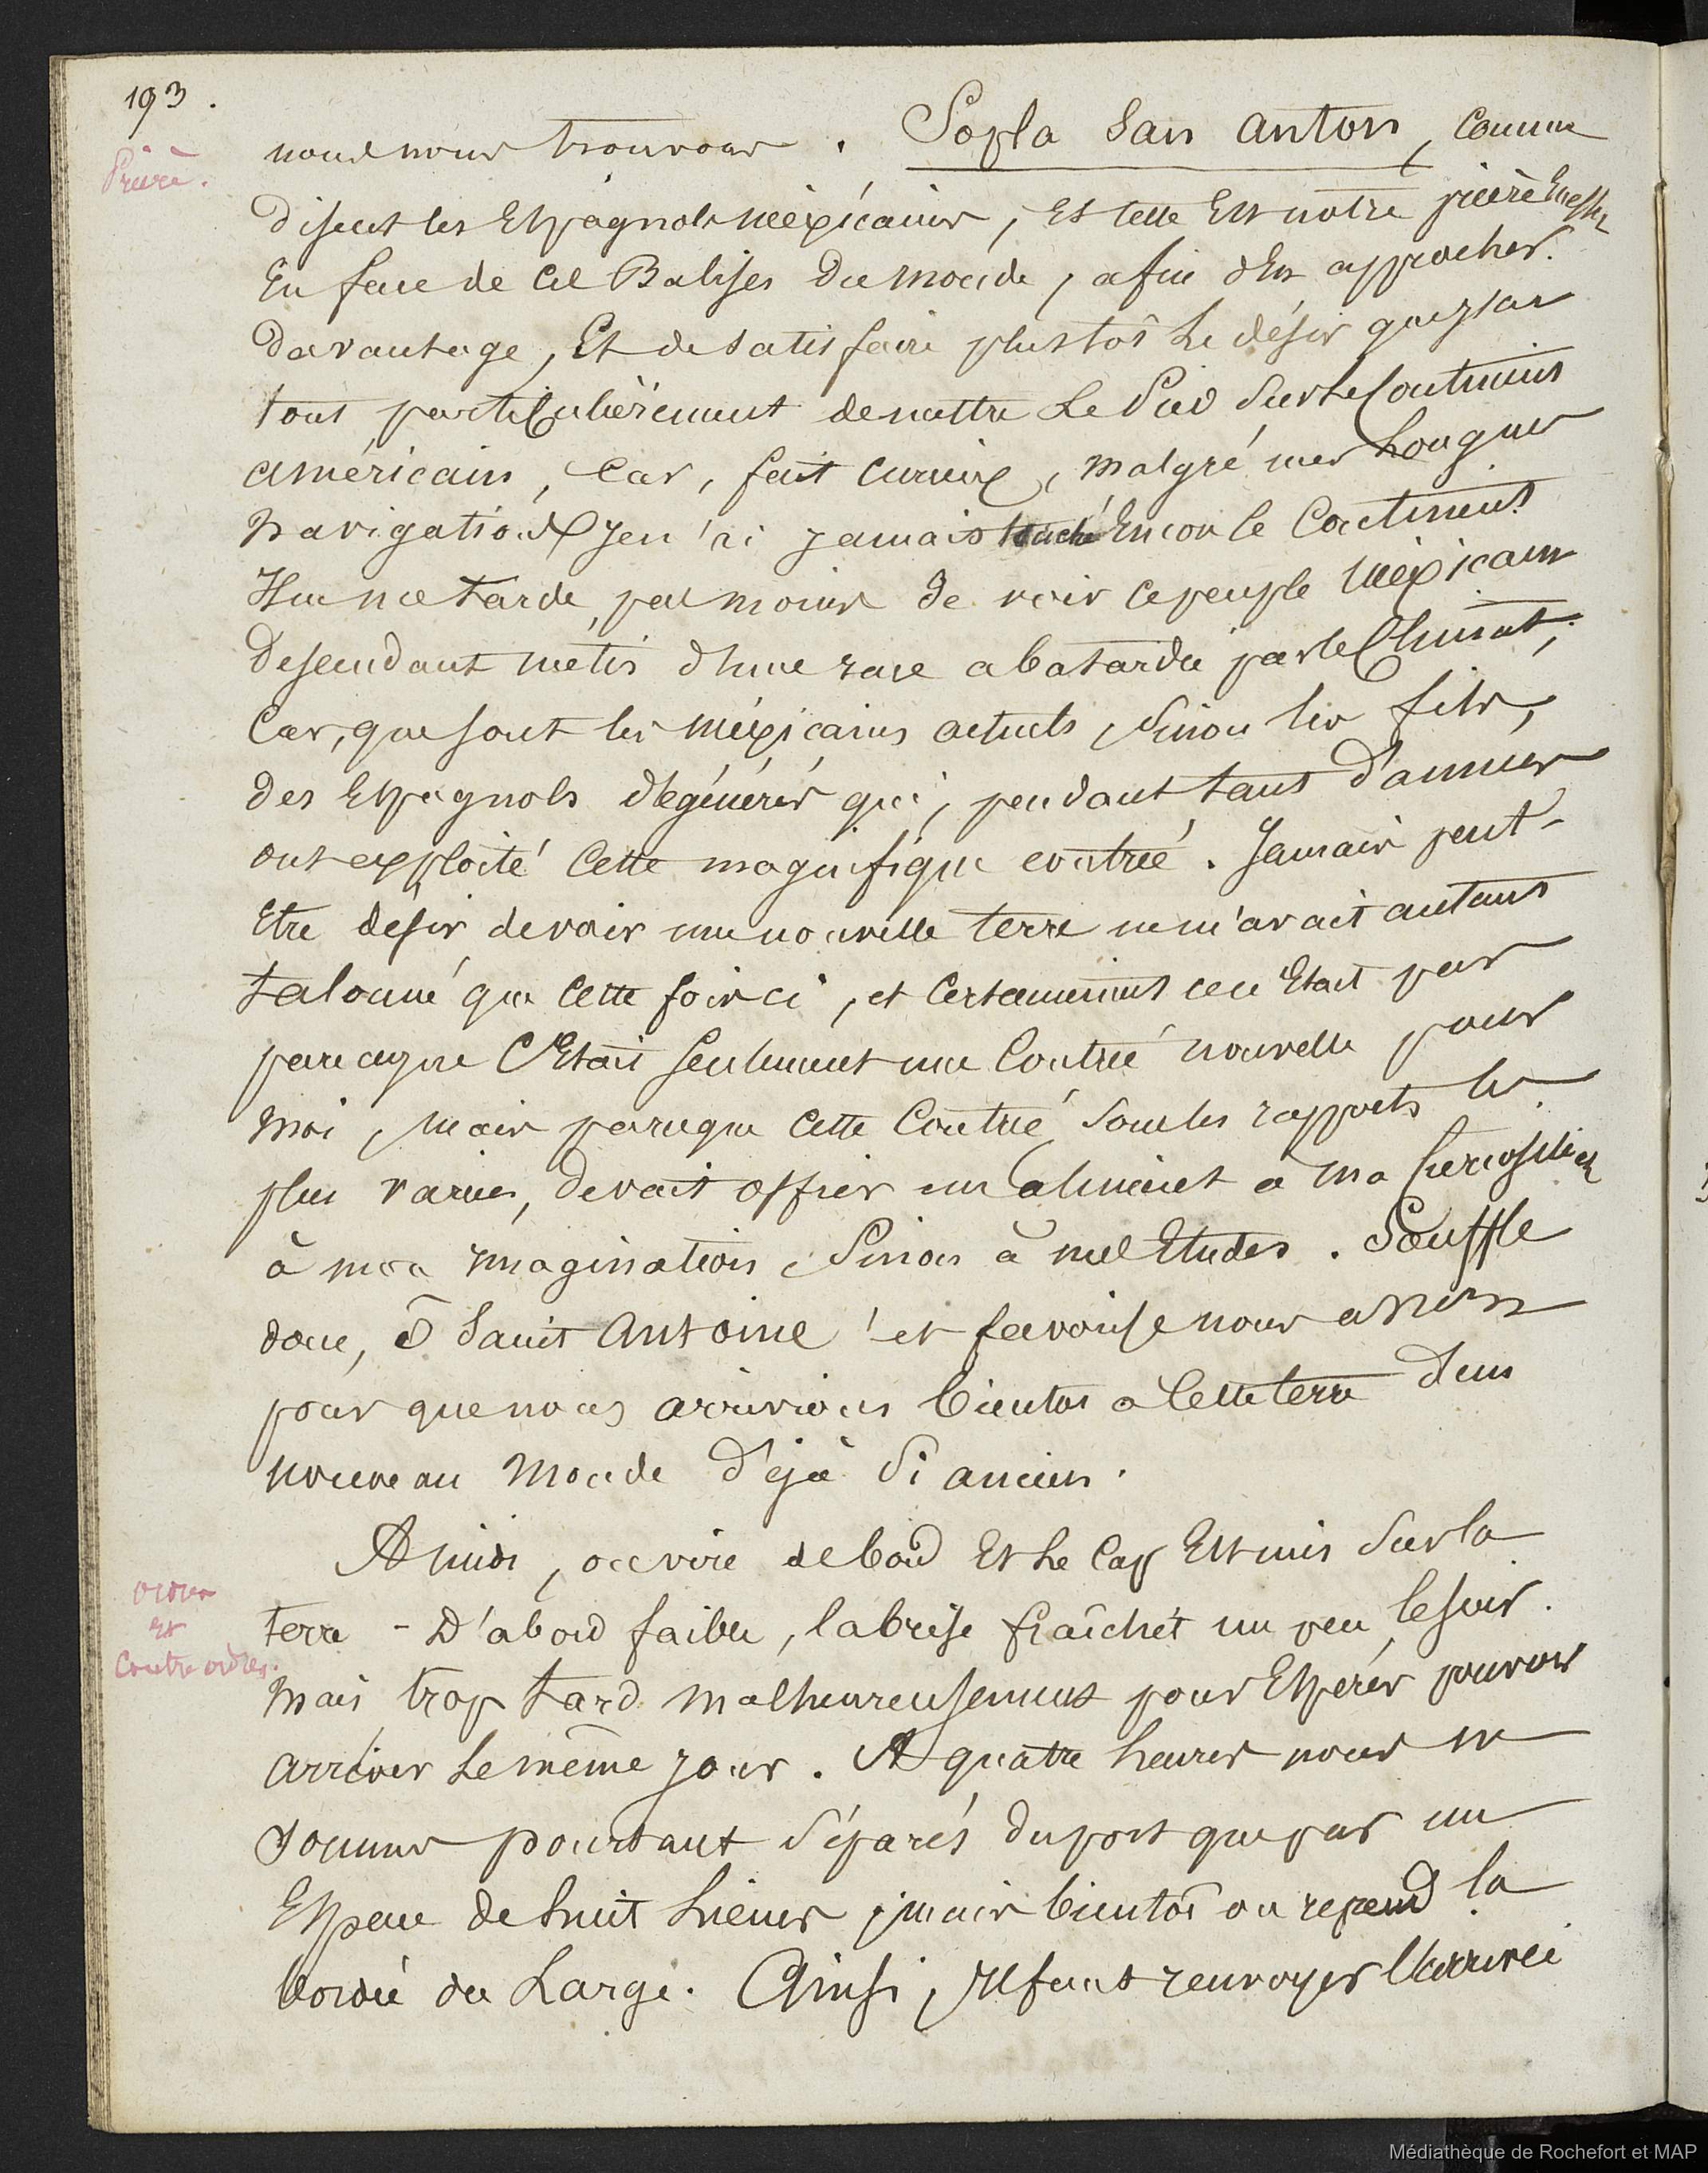 193.
Prière.
nous nous trouvons. Sopla San Anton, comme
disent les Espagnols mexicains, et telle est notre prière incessante
En face de ces Balises du monde, afin d'en approcher
davantage, Et de satisfaire plustôt le désir que j'ai
tout particulièrement de mettre le Pied sur le Continent
américain, Car, fait curieux, malgré mes longues
navigations je n'ai jamais touché Encore le Continent
Il me tarde, pas moins de voir ce peuple mexicain
Descendant métis d'une race abatardie par le Climat;
Car, que sont les mexicains actuels, sinon les fils,
des Espagnols dégénérés qui, pendant tant d'années
ont exploité Cette magnifique contrée. Jamais peut-
Etre désir de voir une nouvelle terre ne m'avait autant
talonné que Cette fois ci, et Certainement ce n'Etait pas
parceque C'Etait seulement une Contrée nouvelle pour
moi, mais parceque Cette Contrée, sous les rapports les
plus variés, devait offrir un aliment a ma curiosité et
à mon imagination, sinon à mes Etudes. Souffle
donc, ô Saint Antoine! et favorise nous assez
pour que nous arrivions bientot a Cette terre d'un
nouveau Monde Déjà si ancien.
A midi, on vire de bord Et le Cap Est mis sur la
Ordres
et
Contre ordres.
terre - D'abord faible, la brise fraîchit un peu le soir.
Mais trop tard malheureusement pour Espérer pouvoir
arriver le même jour. A quatre heures nous ne
sommes pourtant séparés du port que par un
Espace de huit Lieues, mais bientôt on reprend la
bordée du Large. Ainsi, Il faut renvoyer l'arrivée
Médiathèque de Rochefort et MAP